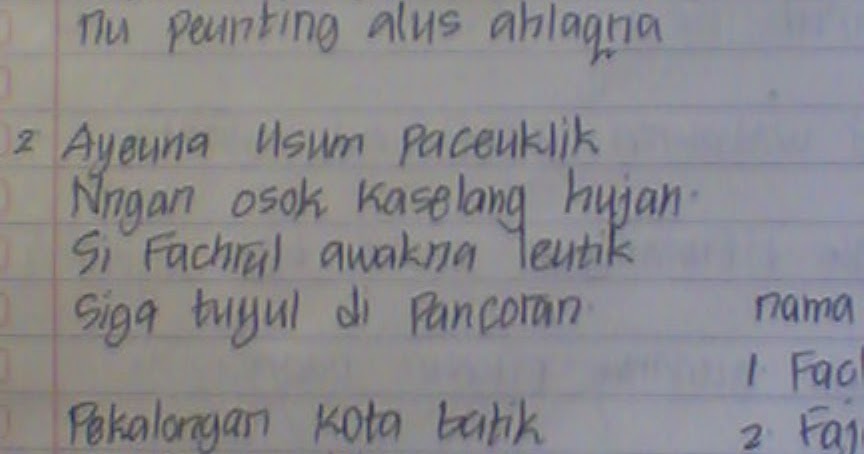 nu peunting alus ahlaqna
2 Ayeuna usum paceuklik
Nngan osok kaselang hujan.
Si Fachrul awakna leutik
Siga tuyul di Pancoran
nama
1 Fac
Pekalongan kota batik
2. Faj